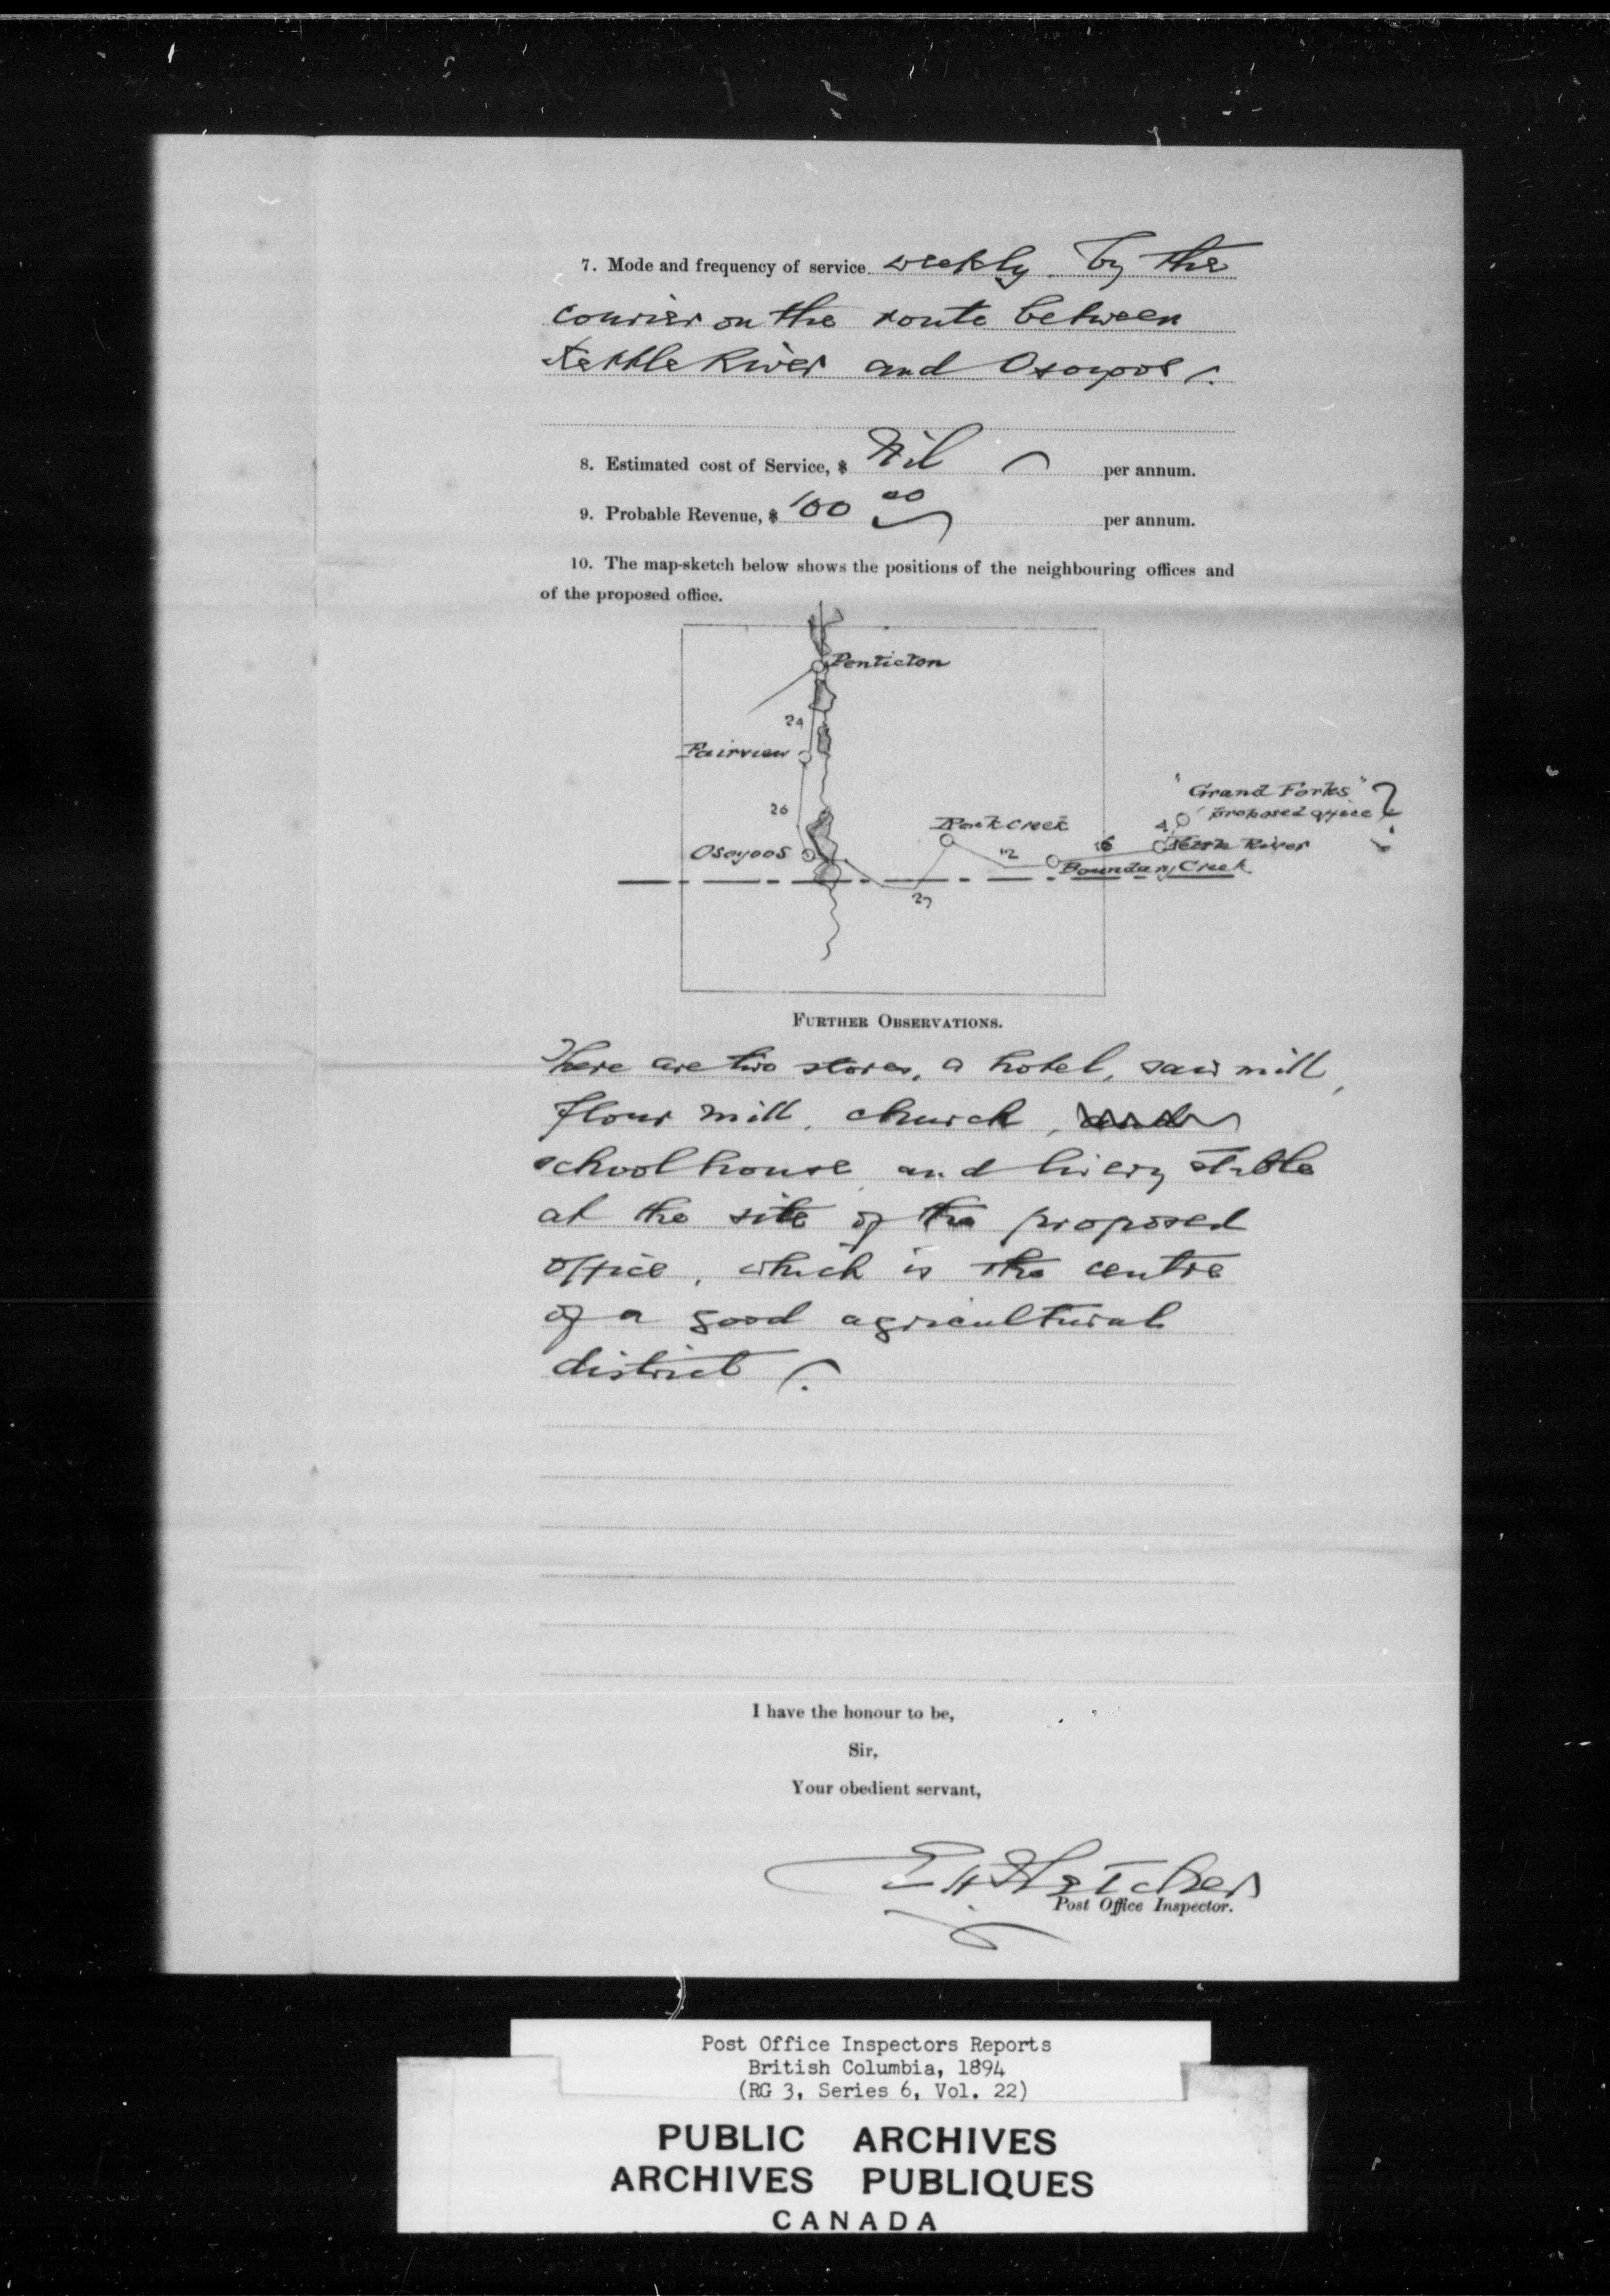 7. Mode and frequency of service weekly. by the
courier on the route between
Kettle River and Osoyoos.
8. Estimated cost of Service, $ Nil per annum.
9. Probable Revenue, $ 100 00 per annum.
10. The map-sketch below shows the positions of the neighbouring offices and
of the proposed office.
Penticton
24
Fairview
26
"Grand Forks" ?
proposed office
Rock Creek
4
Osoyoos
12
16
Kettle River
Boundary Creek
27
FURTHER OBSERVATIONS.
There are two stores, a hotel, saw mill,
flour mill, church, and
schoolhouse and livery stable
at the site of the proposed
office, which is the centre
of a good agricultural
district.
I have the honour to be,
Sir,
Your obedient servant,
E H Fletcher
Post Office Inspector.
Post Office Inspectors Reports
British Columbia, 1894
(RG 3, Series 6, Vol. 22)
PUBLIC ARCHIVES
ARCHIVES PUBLIQUES
CANADA